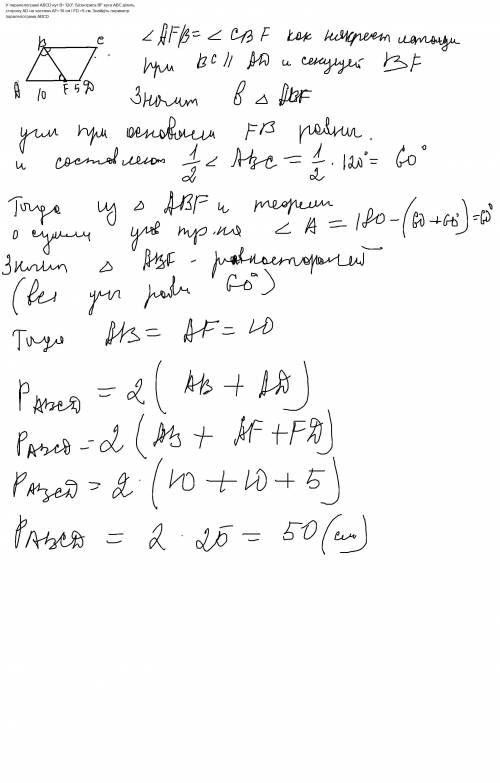 У паралелограмі ABCD кут B= 120°. Бісектриса BF кута ABC ділить
сторону AD на частини AF= 10 см і FD =5 см. Знайдіть периметр
паралелограма ABCD
B C
A 10 F 5 D
∠AFB = ∠CBF как накрест лежащи
при BC || AD и секущей BF
Значит в △ ABF
углы при основании FB равны.
и составляют 1/2 ∠ABC = 1/2 · 120° = 60°
Тогда из △ ABF и теореми
о сумме углов тр-ка ∠A = 180 - (60 + 60°) = 60°
Значит △ ABF - равносторонний
(все углы равны 60°)
Тогда AB = AF = 10
P ABCD = 2 (AB + AD)
P ABCD = 2 (AB + AF + FD)
P ABCD = 2 · (10 + 10 + 5)
P ABCD = 2 · 25 = 50 (см)